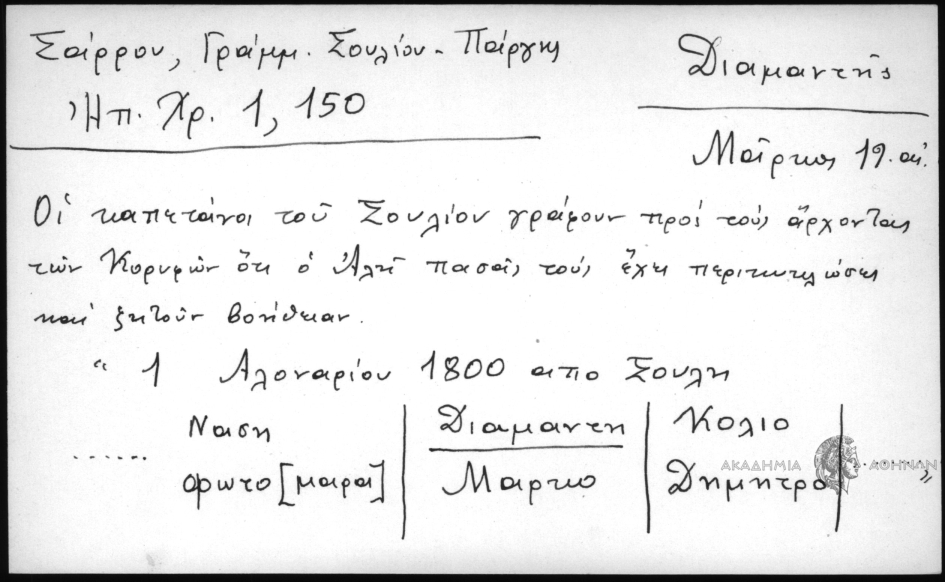 Σάρρου, Γράμμ. Σουλίου - Πάργης
Ἠπ. Χρ. 1, 150
Διαμαντής
Μάρκος 19. αἰ.
Οἱ καπετάνοι τοῦ Σουλίου γράφουν πρὸς τοὺς ἄρχοντας
τῶν Κορυφῶν ὅτι ὁ Ἀλῆ πασᾶς τοὺς ἔχει περικυκλώσει
καὶ ζητοῦν βοήθειαν.
“ 1 Αλοναρίου 1800 απο Σουλη
...... Ναση | Διαμαντη | Κολιο | ...... ”
φωτο [μαρα] | Μαρκο | Δημητρο
ΑΚΑΔΗΜΙΑ ΑΘΗΝΩΝ